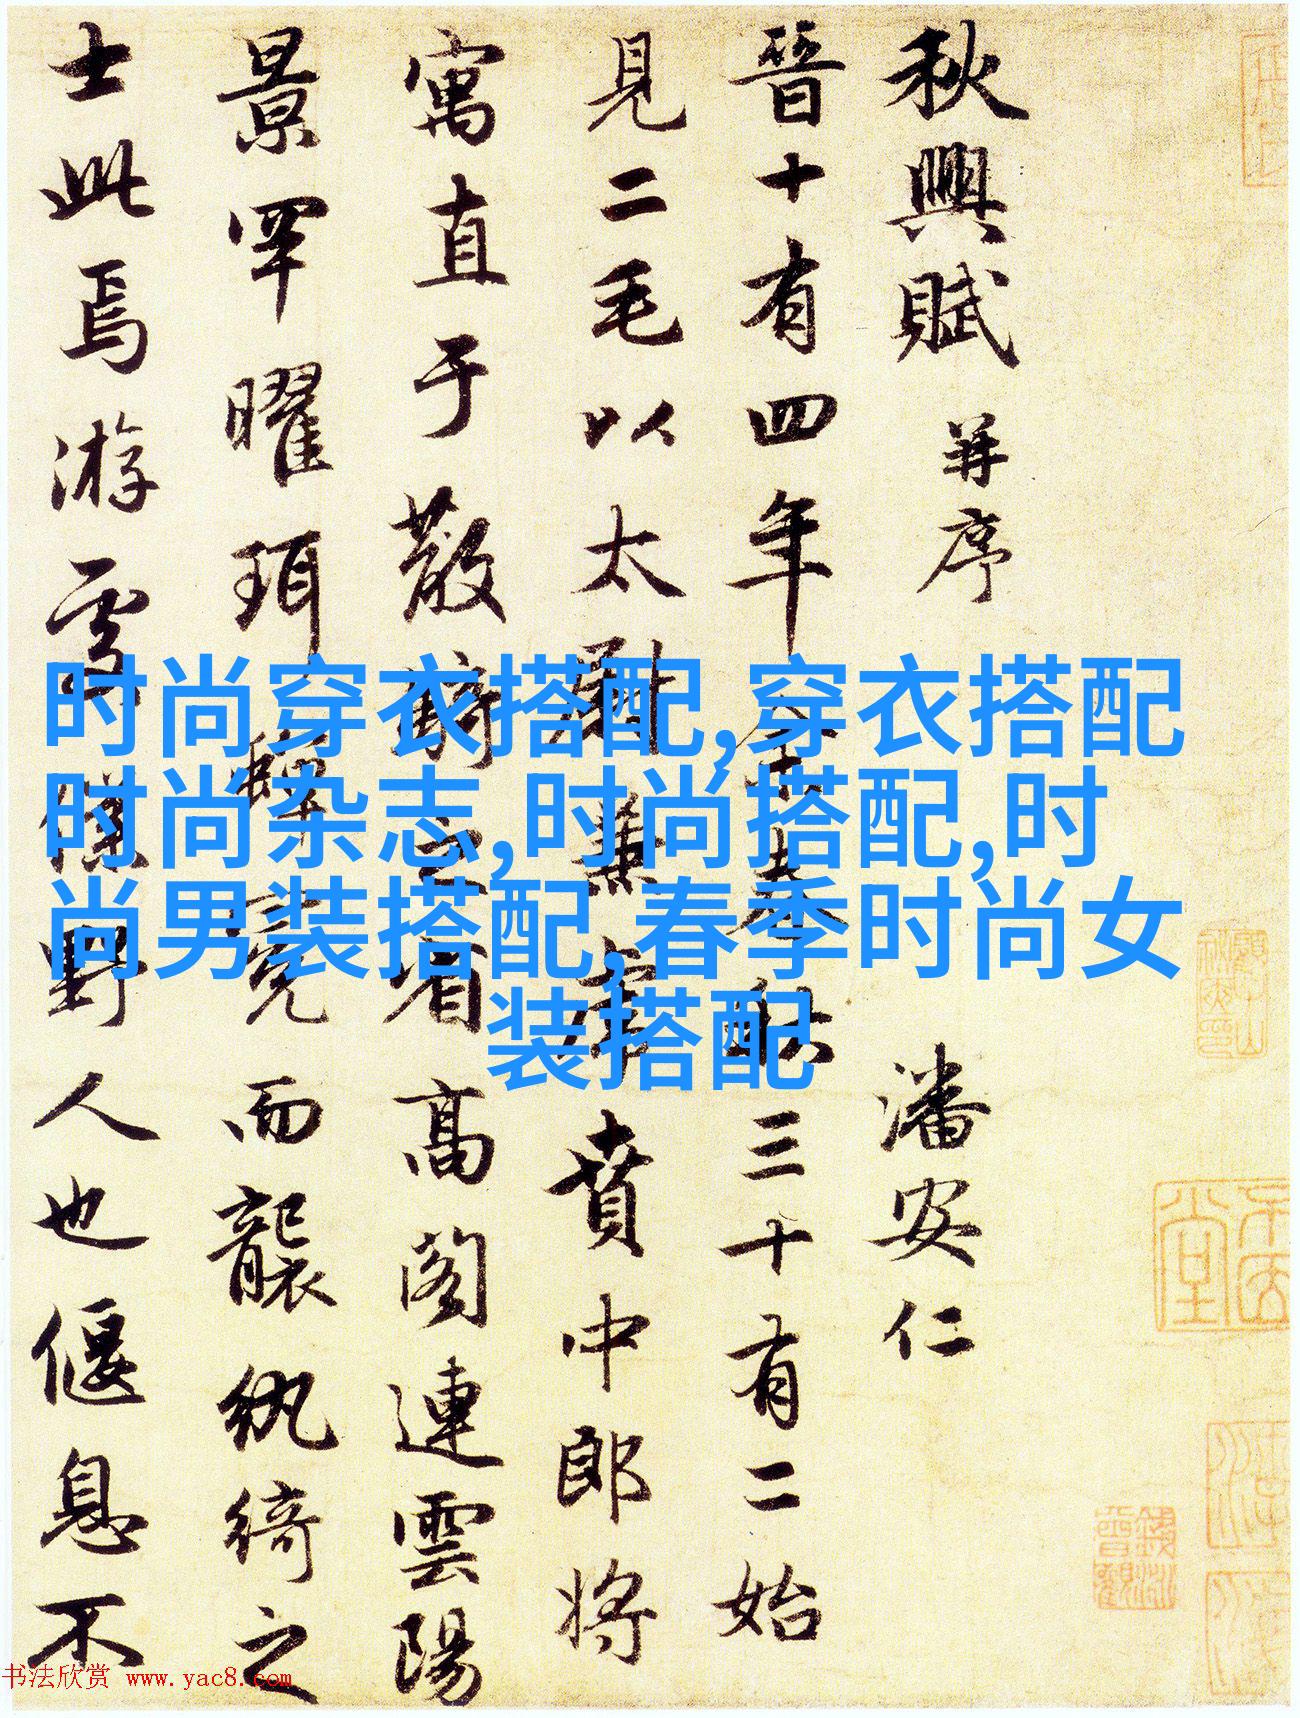 秋興賦 并序 潘安仁
晉十有四年余春秋三十有二始
見二毛以太尉兼虎賁中郎將
寓直于散騎之省高閣連雲陽
景罕曜珥蟬冕而襲紈綺之
士此焉游處僕野人也偃息不
时尚穿衣搭配,穿衣搭配
时尚杂志,时尚搭配,时
尚男装搭配,春季时尚女
装搭配
书法欣赏 www.yac8.com